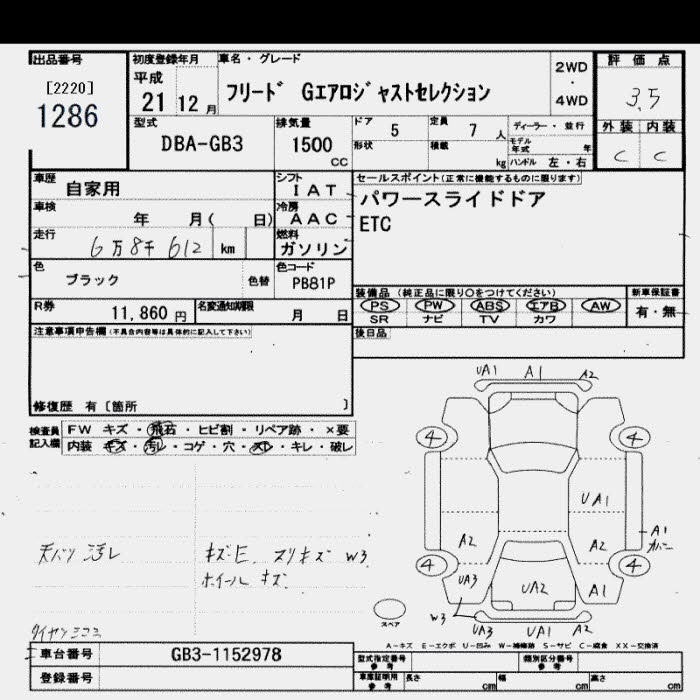 出品番号 初度登録年月 車名・グレード 評価点
[2220] 平成 2WD
1286 21 12月 フリード Gエアロジャストセレクション ・ 3.5
4WD
型式 排気量 ドア 5 定員 7人 ディーラー・並行 外装 内装
DBA-GB3 1500 CC 形状 積載 kg モデル年式 年 C C
ハンドル 左・右
車歴 自家用 シフト IAT セールスポイント(正常に機能するものに限ります)
車検 年 月( 日) 冷房 AAC パワースライドドア
走行 6万8千612 km 燃料 ガソリン ETC
色 ブラック 色替 色コード PB81P
装備品 (純正品に限り○をつけてください) 新車保証書
R券 11,860円 名変通知期限 月 日 PS PW ABS エアB AW 有・無
SR ナビ TV カワ
注意事項申告欄(不具合内容等は具体的に記入して下さい) 後日品
修復歴 有〔箇所 〕
検査員記入欄 FW キズ・飛石・ヒビ割・リペア跡・×要
内装 キズ・汚レ・コゲ・穴・スレ・キレ・破レ
UA1 A1 A2
4 4
UA1
A2 A2 A1
天バリ 汚レ キズ・E. スリキズ W3
ホイール キズ
4 4
UA3 UA2 A1
W3
スペア
UA3 UA1 A2
A-キズ E-エクボ U-凹み W-補修跡 S-サビ C-腐食 XX-交換済
車台番号 GB3-1152978 型式指定番号 参考 類別区分番号 参考
登録番号 車庫証明用 参考 長さ cm 幅 cm 高さ cm